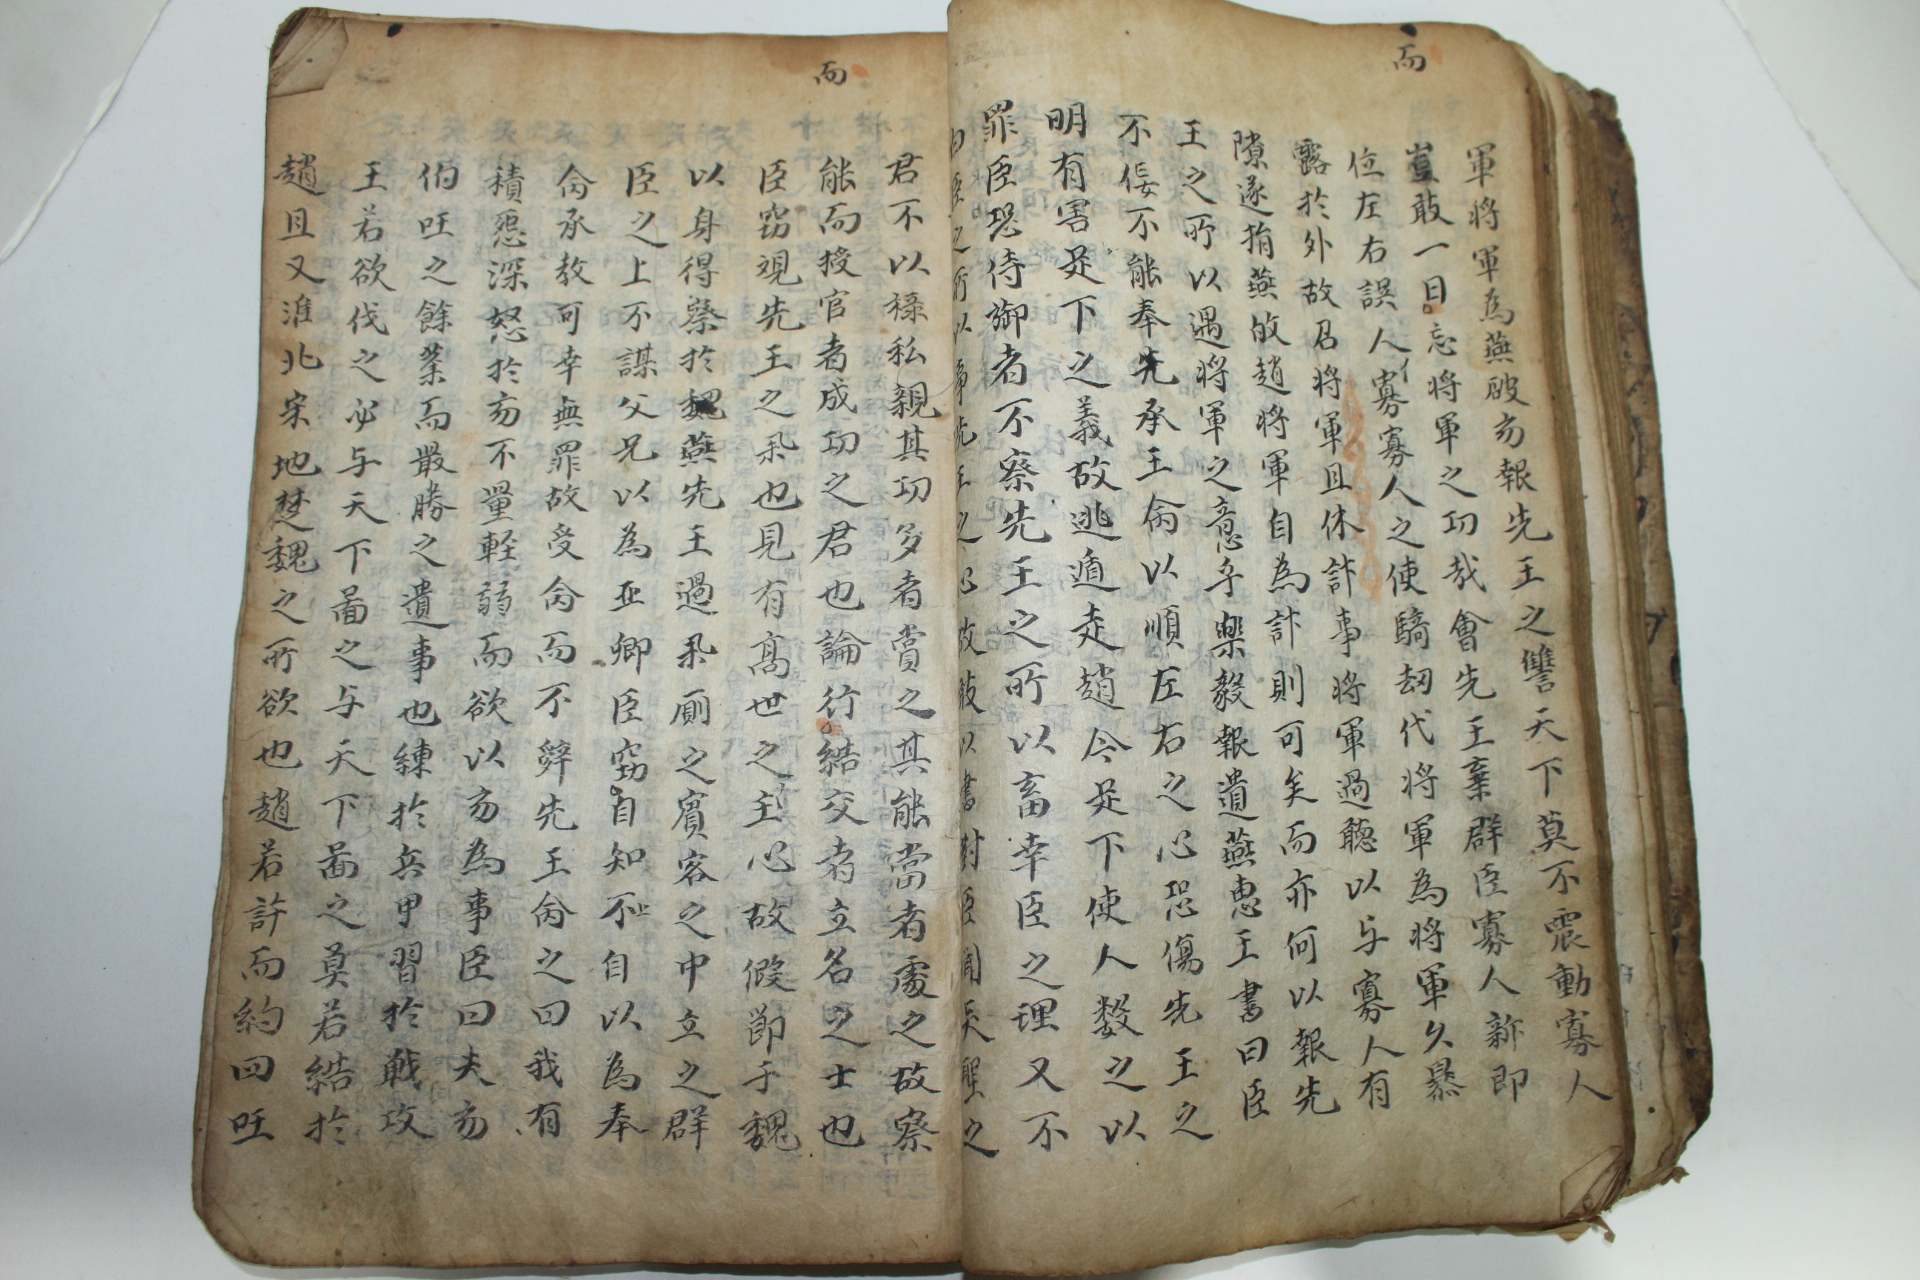 而
軍将軍為燕破齐報先王之讐天下莫不震動寡人
豈敢一日忘将軍之功哉會先王棄群臣寡人新即
位左右誤人寡寡人之使騎刼代将軍為将軍久暴
露於外故召将軍且休計事将軍過聽以与寡人有
隙遂捐燕敀趙将軍自為計則可矣而亦何以報先
王之所以遇将軍之意乎樂毅報遺燕惠王書曰臣
不佞不能奉先承王命以順左右之心恐傷先王之
明有害足下之義故逃遁走趙今足下使人数之以
罪臣恐侍御者不察先王之所以畜幸臣之理又不
白臣之所以事先王之心故敢以書對臣聞贤聖之
而
君不以祿私親其功多者賞之其能當者處之故察
能而授官者成功之君也論行結交者立名之士也
臣窃覌先王之㪯也見有高世之主心故假節于魏
以身得察於魏燕先王過㪯厠之賓客之中立之群
臣之上不謀父兄以為亞卿臣窃自知不自以為奉
命承教可幸無罪故受命而不辝先王命之曰我有
積怨深怒於齐不量軽弱而欲以齐為事臣曰夫齐
伯囯之餘業而最勝之遺事也練於兵甲習於戦攻
王若欲伐之必与天下啚之与天下啚之莫若結於
趙且又淮北宋地楚魏之所欲也趙若許而約四囯